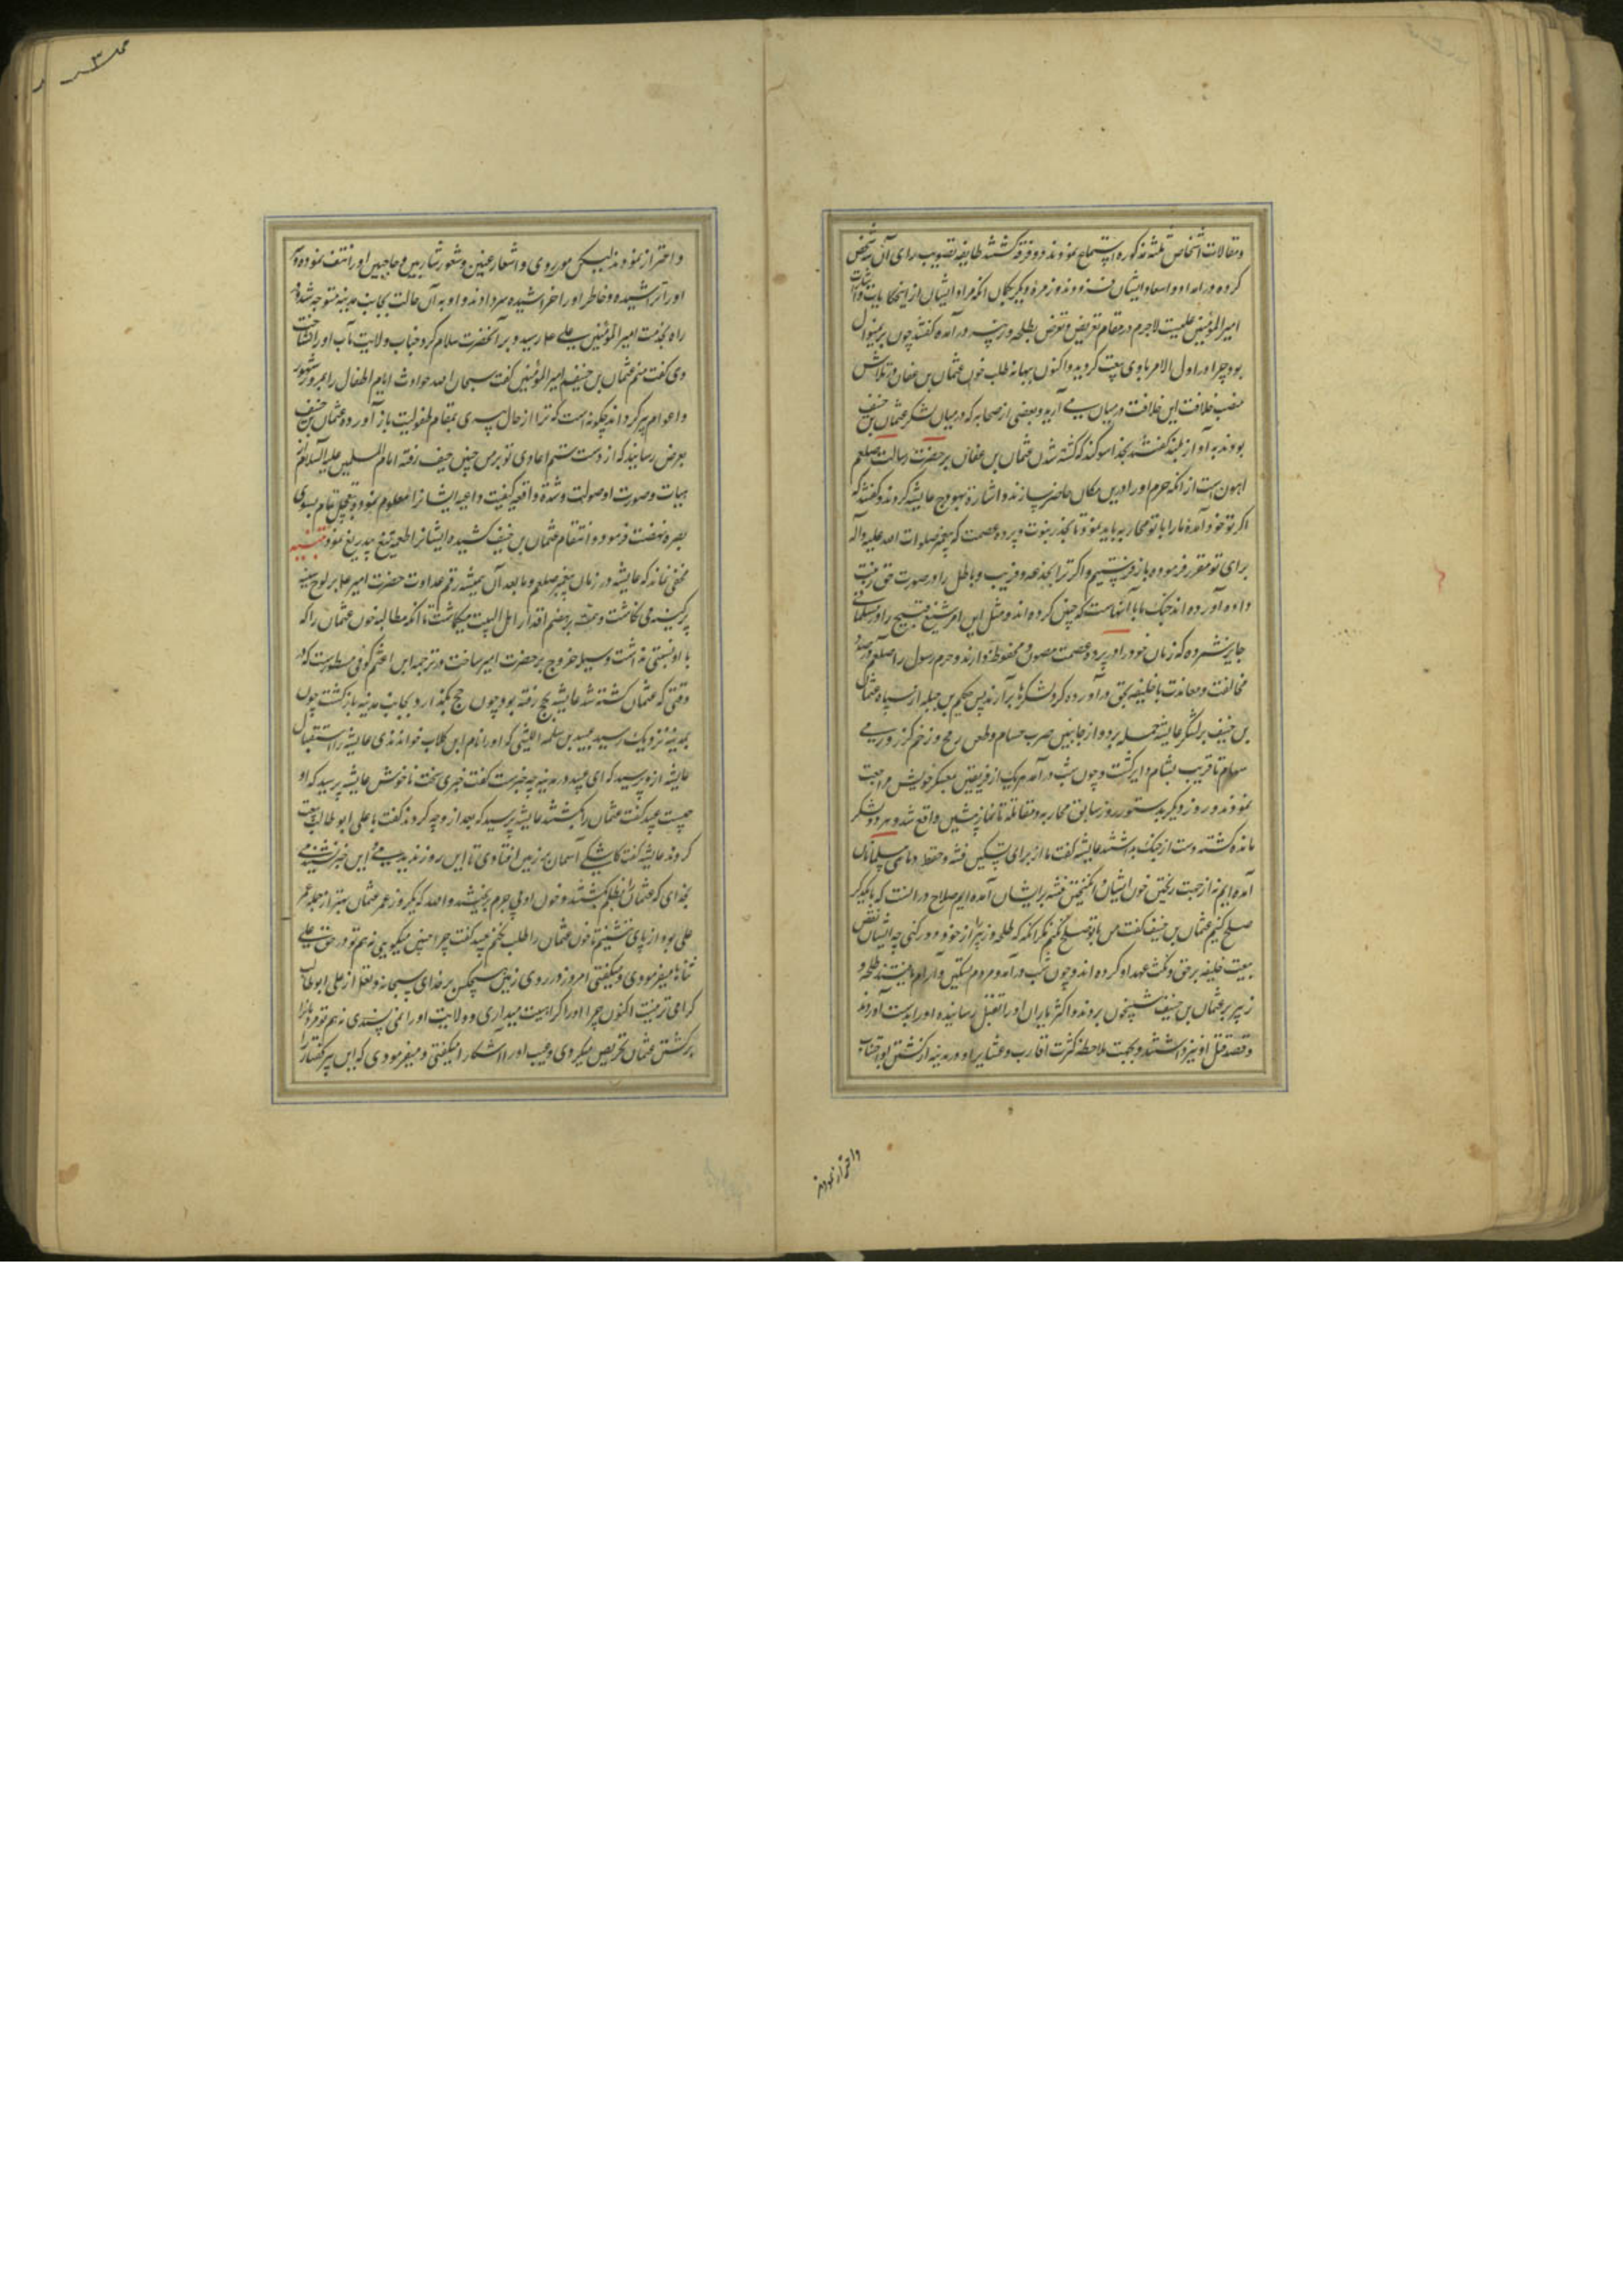 ومقالات اشخاص ثلثه مذکوره استماع نمودند دو فرقه کشتند طایفه تصویب رای آن شخص
کرده در امداد و اسعاد ایشان فزودند و زمره دیکر بکمان انکه مراد ایشان از این حکایات
امیرالمؤمنین علیست لاجرم در مقام تعریض و تعرض بطلحه و زبیر در آمده کفتند چون بر منوال
بود چرا در اول الامر با وی بیعت کردید و اکنون ببهانه طلب خون عثمان بن عفان و تلاش
منصب خلافت این خلافت در میان می آرید و بعضی از صحابه که در میان لشکر عثمان بن حنیف
بودند به آواز بلند کفتند بخدا سوکند که کشته شدن عثمان بن عفان بر حضرت رسالت صلعم
اهون است از انکه حرم او را درین مکان حاضر سازند و اشارة بهودج عایشه کردند و کفتند که
اکر تو خود آمده ما را با تو محاربه باید نمود تا بخدر نبوت و پرده عصمت که پیغمبر صلوات الله علیه و آله
برای تو مقرر فرموده باز فرستیم و اکر ترا بخدعه و فریب و باطل را در صورت حق زینت
داده آورده اند جنک ما با آنهاست که چنین کرده اند و مثل این امر شنیع قبیح را در مسلمانی
جایز شمرده که زنان خود را در پرده عصمت مصون و محفوظ دارند و حرم رسول را صلعم در صدد
مخالفت و معاندت با خلیفه بحق در آورده کرد لشکرها بر آرند پس حکیم بن جبله از سپاه عثمان
بن حنیف بر لشکر عایشه حمله برد و از جانبین ضرب حسام و طعن رمح و زخم کرز و رمی
سهام تا قریب بشام دایر کشت و چون شب در آمد هر یک از فریقین بمعسکر خویش مراجعت
نمودند و روز دیکر بدستور روز سابق محاربه و مقاتله تا نماز پیشین واقع شد و هر دو لشکر
مانده کشته دست از جنک بداشتند عایشه کفت ما از برای تسکین فتنه و حفظ دمای مسلمانان
آمده ایم نه از جهت ریختن خون ایشان و انکیختن فتنه بر ایشان آمده ایم صلاح در انست که با یکدیکر
صلح کنیم عثمان بن حنیف کفت من با تو صلح نکنم مکر انکه که طلحه و زبیر را از خود دور کنی چه ایشان نقض
بیعت خلیفه بر حق و نکث عهد او کرده اند و چون شب در آمد و مردم تسکین و آرام یافتند طلحه و
زبیر بر عثمان بن حنیف شبیخون بردند و اکثر یاران او را بقتل رسانیده او را بدست آوردند
و قصد قتل او نیز داشتند و بجهت ملاحظه کثرت اقارب و عشایر او در مدینه از کشتن او اجتناب
واحتراز نمودند
و احتراز نمودند لیکن موی روی و اشعار عینین و شعور شاربین و حاجبین او را نتف نموده و
او را تراشیده و خاطر او را خراشیده سر دادند و او به آن حالت بجانب مدینه متوجه شد و در
راه بخدمت امیرالمؤمنین علی ع رسید و بر آنحضرت سلام کرد جناب ولایت مآب او را نشناخت
وی کفت منم عثمان بن حنیف امیرالمؤمنین کفت سبحان الله حوادث ایام اطفال را بمرور شهور
و اعوام پیر کرداند چکونه است که ترا از حال پیری بمقام طفولیت باز آورده عثمان بن حنیف
بعرض رسانید که از دست ستم اعادی تو بر من چنین حیف رفته امام المسلمین علیه السلام از
هیات و صورت او صولت و شدة واقعه کیفیت داعیه ایشانرا معلوم نموده بتعجیل تمام بسوی
بصره نهضت فرمود و انتقام عثمان بن حنیف کشیده ایشانرا طعمه تیغ بیدریغ نمود تنبیه
مخفی نماند که عایشه در زمان پیغمبر صلعم و ما بعد آن همیشه رقم عداوت حضرت امیر ع بر لوح سینه
پر کینه می نکاشت و همت بر هضم اقدار اهل البیت میکماشت تا انکه مطالبه خون عثمان را که
با او نسبتی نداشت وسیله خروج بر حضرت امیر ساخت و در ترجمه ابن اعثم کوفی مسطورست که در
وقتی که عثمان کشته شد عایشه بحج رفته بود چون حج بکذارد و بجانب مدینه باز کشت چون
بمدینه نزدیک رسید عبید بن سلمه اللیثی که او را نام ابن کلاب خواندندی عایشه را استقبال
عایشه ازو پرسید که ای عبید در مدینه چه خبرست کفت خبری سخت ناخوش عایشه پرسید که او
چیست عبید کفت عثمان را بکشتند عایشه پرسید که بعد از و چه کردند کفت با علی ابو طالب بیعت
کردند عایشه کفت کاشکی آسمان بر زمین افتادی تا این روز ندیدمی و این خبر نشنیدمی
بخدای که عثمان را بظلم بکشتند و خون او بی جرم بریختند والله که یکروز عمر عثمان بهتر از جمله عمر
علی بود از پای ننشینم تا خون عثمان را طلب نکنم عبید کفت چرا چنین میکویی نه هم تو در حق علی
ثناها میفرمودی و میکفتی امروز در روی زمین هیچکس بر خدای سبحانه و تعالی از علی ابو طالب
کرامی تر نیست اکنون چرا او را کراهیت میداری و ولایت او را نمی پسندی نه هم تو مردمانرا
بر کشتن عثمان تحریض میکردی و عیب او را آشکار میکفتی و میفرمودی که این پیر کفتار را